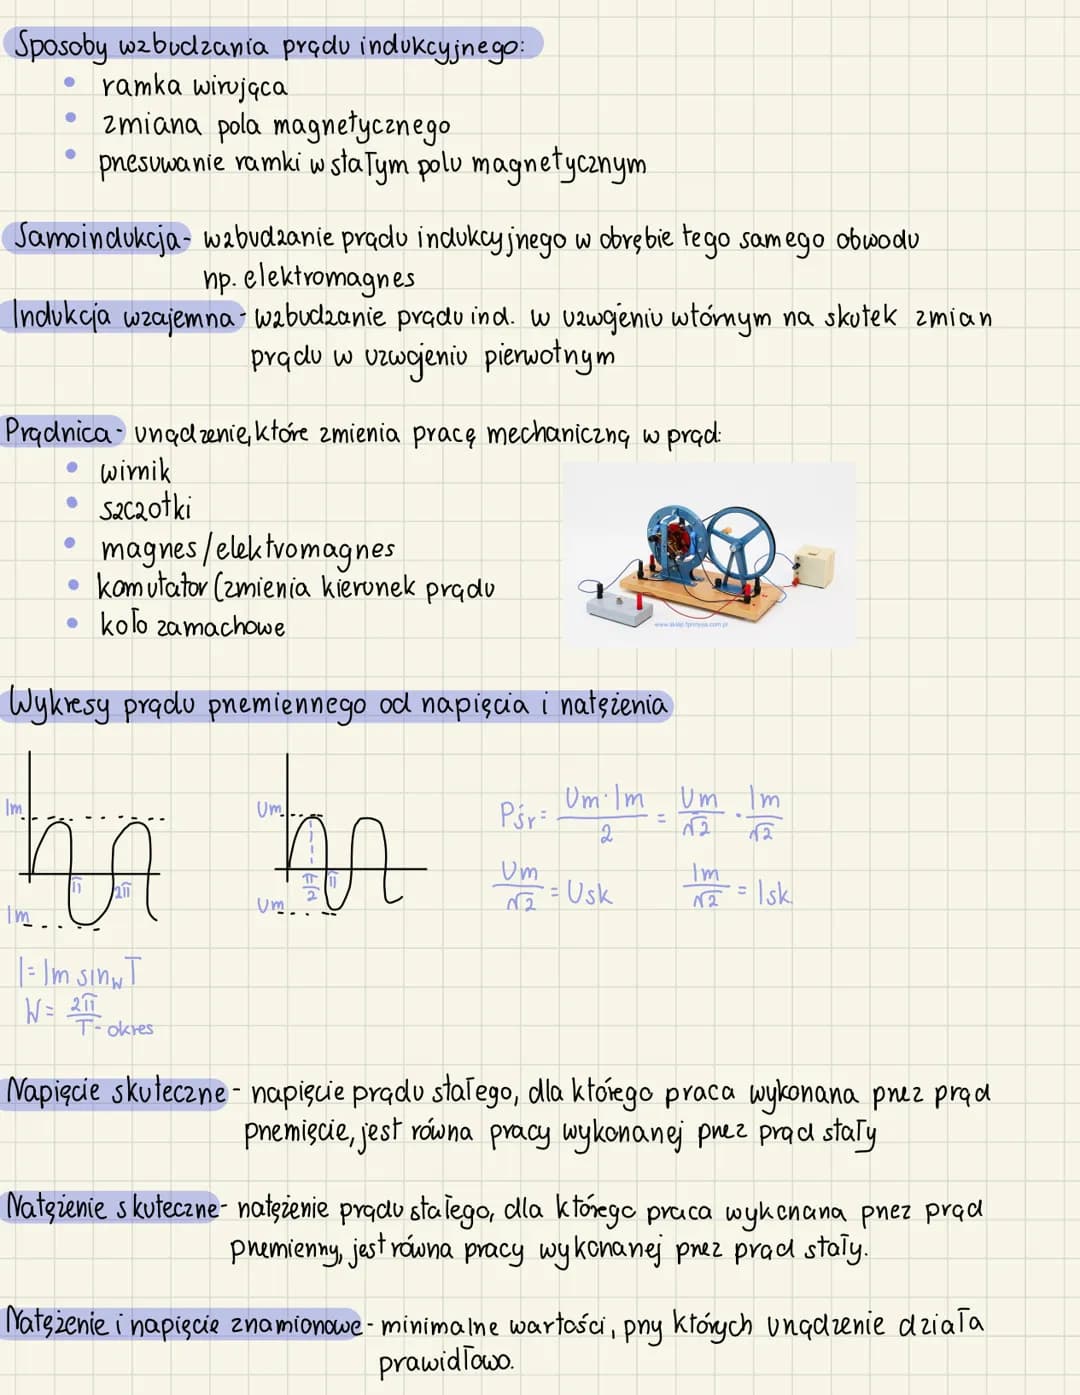 Sposoby wzbudzania prądu indukcyjnego:
• ramka wirująca
• zmiana pola magnetycznego
• przesuwanie ramki w stałym polu magnetycznym
Samoindukcja - wzbudzanie prądu indukcyjnego w obrębie tego samego obwodu
np. elektromagnes
Indukcja wzajemna - wzbudzanie prądu ind. w uzwojeniu wtórnym na skutek zmian
prądu w uzwojeniu pierwotnym
Prądnica - urządzenie, które zmienia pracę mechaniczną w prąd:
• wirnik
• szczotki
• magnes/elektromagnes
• komutator (zmienia kierunek prądu
• koło zamachowe
www.sklep.fpnnysa.com.pl
Wykresy prądu przemiennego od napięcia i natężenia
Im
π 2π
Im
Um
π/2 π
Um
Pśr = Um·Im/2 = Um/√2 · Im/√2
Um/√2 = Usk Im/√2 = Isk
I = Im sin w T
W = 2π/T - okres
Napięcie skuteczne - napięcie prądu stałego, dla którego praca wykonana przez prąd
przemięcie, jest równa pracy wykonanej przez prąd stały
Natężenie skuteczne - natężenie prądu stałego, dla którego praca wykonana przez prąd
przemienny, jest równa pracy wykonanej przez prąd stały.
Natężenie i napięcie znamionowe - minimalne wartości, przy których urządzenie działa
prawidłowo.